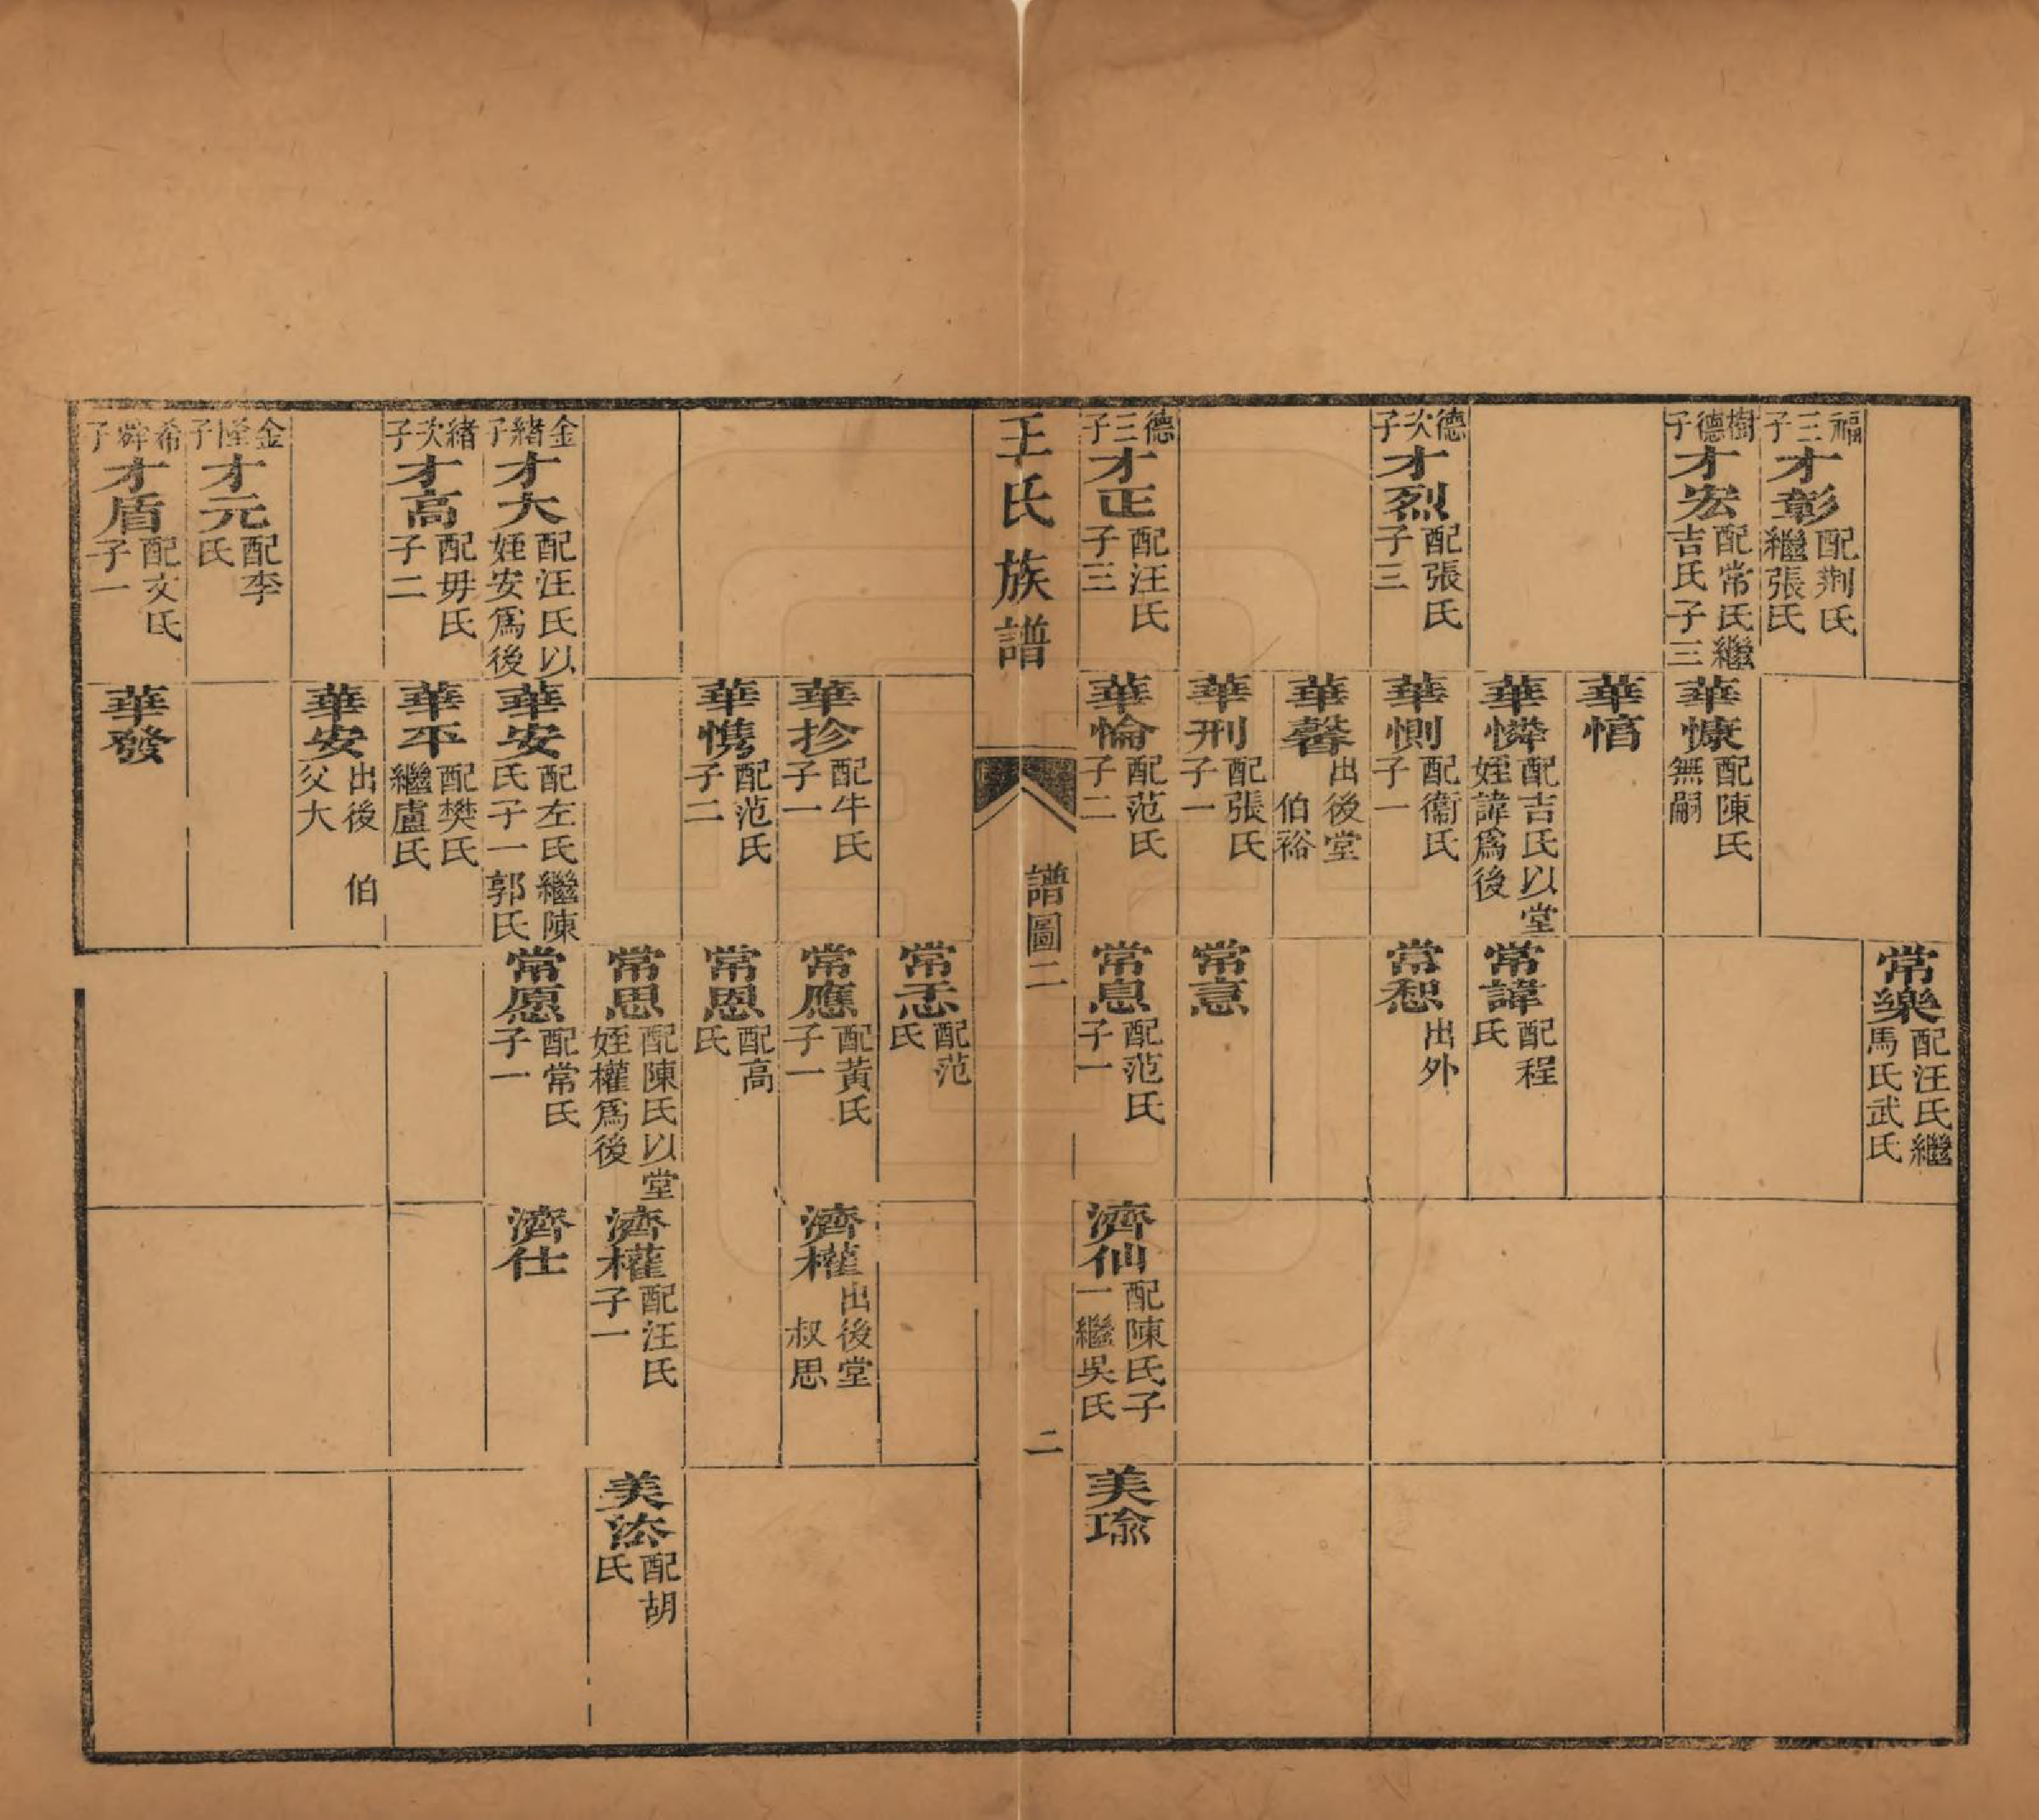 常樂 配汪氏繼馬氏武氏
福三子 才彰 配荆氏繼張氏
樹德子 才宏 配常氏繼吉氏子三
華慷 配陳氏無嗣
華愊
華憐 配吉氏以堂姪諱爲後
常諱 配程氏
德次子 才烈 配張氏子三
華惻 配衞氏子一
常恕 出外
華馨 出後堂伯裕
華刑 配張氏子一
常意
德三子 才正 配汪氏子三
華惀 配范氏子二
常息 配范氏子一
濟仙 配陳氏子一繼吳氏
美瑜
王氏族譜
譜圖二
二
常恚 配范氏
華抮 配牛氏子一
常應 配黃氏子一
濟權 出後堂叔思
華㥞 配范氏子二
常恩 配高氏
常思 配陳氏以堂姪權爲後
濟權 配汪氏子一
美添 配胡氏
金緒子 才大 配汪氏以姪安爲後
華安 配左氏繼陳氏子一郭氏
常愿 配常氏子一
濟仕
緒次子 才高 配毋氏子二
華平 配樊氏繼盧氏
華安 出後伯父大
金隆子 才元 配李氏
希舜子 才盾 配文氏子一
華發